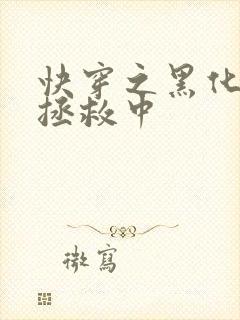 快穿之黑化
拯救中
微寫